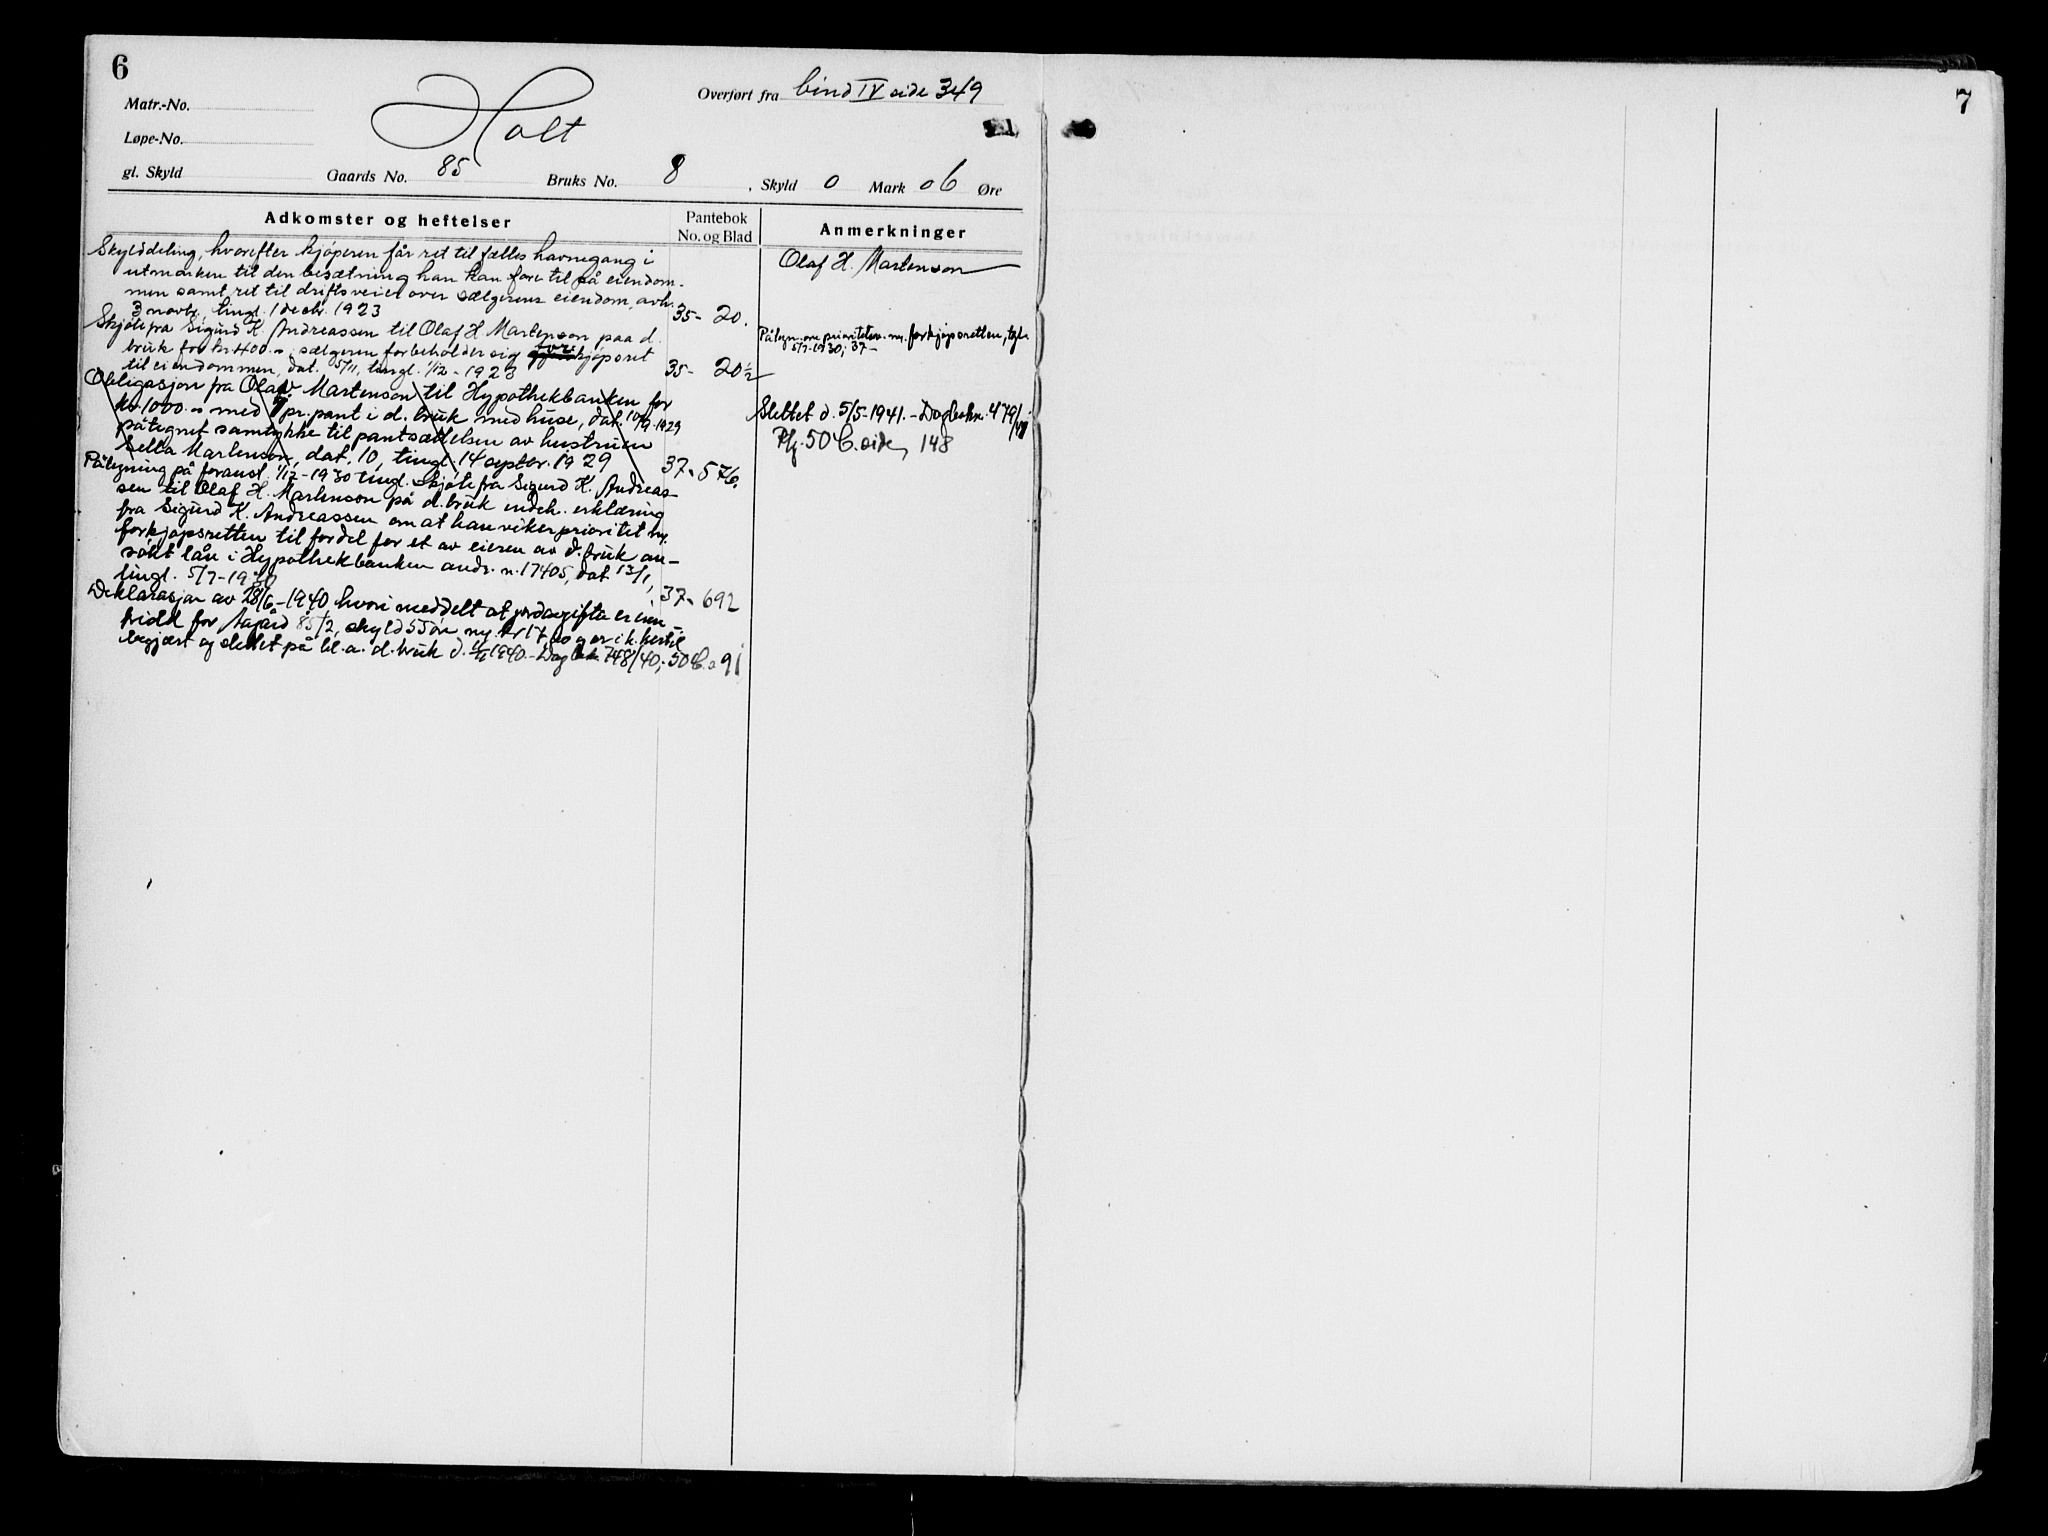 6
7
Overført fra bind IV side 349
Matr.-No.
Holt
Løpe-No.
gl. Skyld Gaards No. 85 Bruks No. 8, Skyld 0 Mark 06 Øre
Adkomster og heftelser Pantebok No. og Blad Anmerkninger
Skylddeling, hvorefter kjøperen får ret til fælles havnegang i
utmarken til den besætning han kan fore til på eiendom-
men samt ret til driftsveier over sælgerens eiendom, avh.
3 novbr., tingl. 1 decbr. 1923 35- 20.
Olaf H. Martenson
Skjøte fra Sigurd K. Andreassen til Olaf H Martenson paa d.
bruk for kr 400.- sælgeren forbeholder sig forkjøpsret
til eiendommen, dat. 5/11, tingl. 1/12-1923 35- 20½
Påtegn. om prioritetsv. m. forkjøpsretten, tgl.
5/7-1930, 37-
Obligasjon fra Olaf Martenson til Hypothekbanken for
kr. 1000.- med 1 pr. pant i d. bruk med huse, dat. 10/9-1929
påtegnet samtykke til pantsættelsen av hustruen
Sella Martenson, dat. 10, tingl. 14 septbr. 1929 37- 576.
Slettet d. 5/5-1941. - Dagboknr. 479/41
Pfg. 50 C. side 148
Påtegning på foranst. 1/12-1930 tingl. skjøte fra Sigurd K. Andreas-
sen til Olaf H. Martenson på d. bruk indeh. erklæring
fra Sigurd K. Andreassen om at han viker prioritet m.
forkjøpsretten til fordel for et av eieren av d. bruk an-
søkt lån i Hypothekbanken andr. n. 17405, dat 13/1,
tingl. 5/7-1930 37- 692
Deklarasjon av 28/6-1940, hvori meddelt at jordavgifta er inn-
fridd for Aagård 85/2, skyld 55 øre ny. kr 17,00 og er i k. hertil
begjært og slettet på bl. a. d. bruk d. 1940.- Dagbok 748/40,- 50 C. s 91